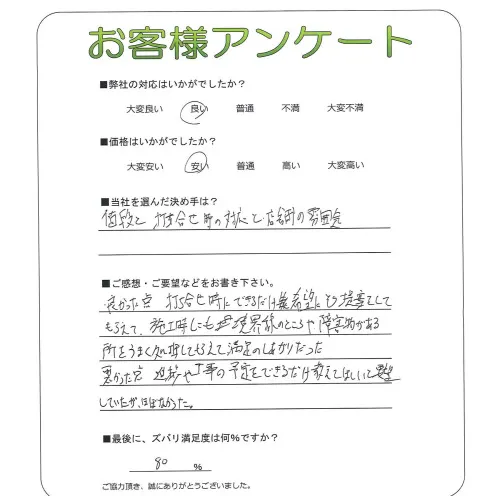 お客様アンケート
■弊社の対応はいかがでしたか？
大変良い 良い 普通 不満 大変不満
■価格はいかがでしたか？
大変安い 安い 普通 高い 大変高い
■当社を選んだ決め手は？
価段と 打ち合せ時の対応と店舗の雰囲気
■ご感想・ご要望などをお書き下さい。
良かった点 打ち合せ時にできるだけ希望にそう提案をして
もらえて、施工時にも 境界線のところや障害物がある
所をうまく処理してもらえて満足のしあがりだった
悪かった点 進捗や工事の予定をできるだけ教えてほしいと
していたが、ほぼなかった。
■最後に、ズバリ満足度は何%ですか？
80 %
ご協力頂き、誠にありがとうございました。